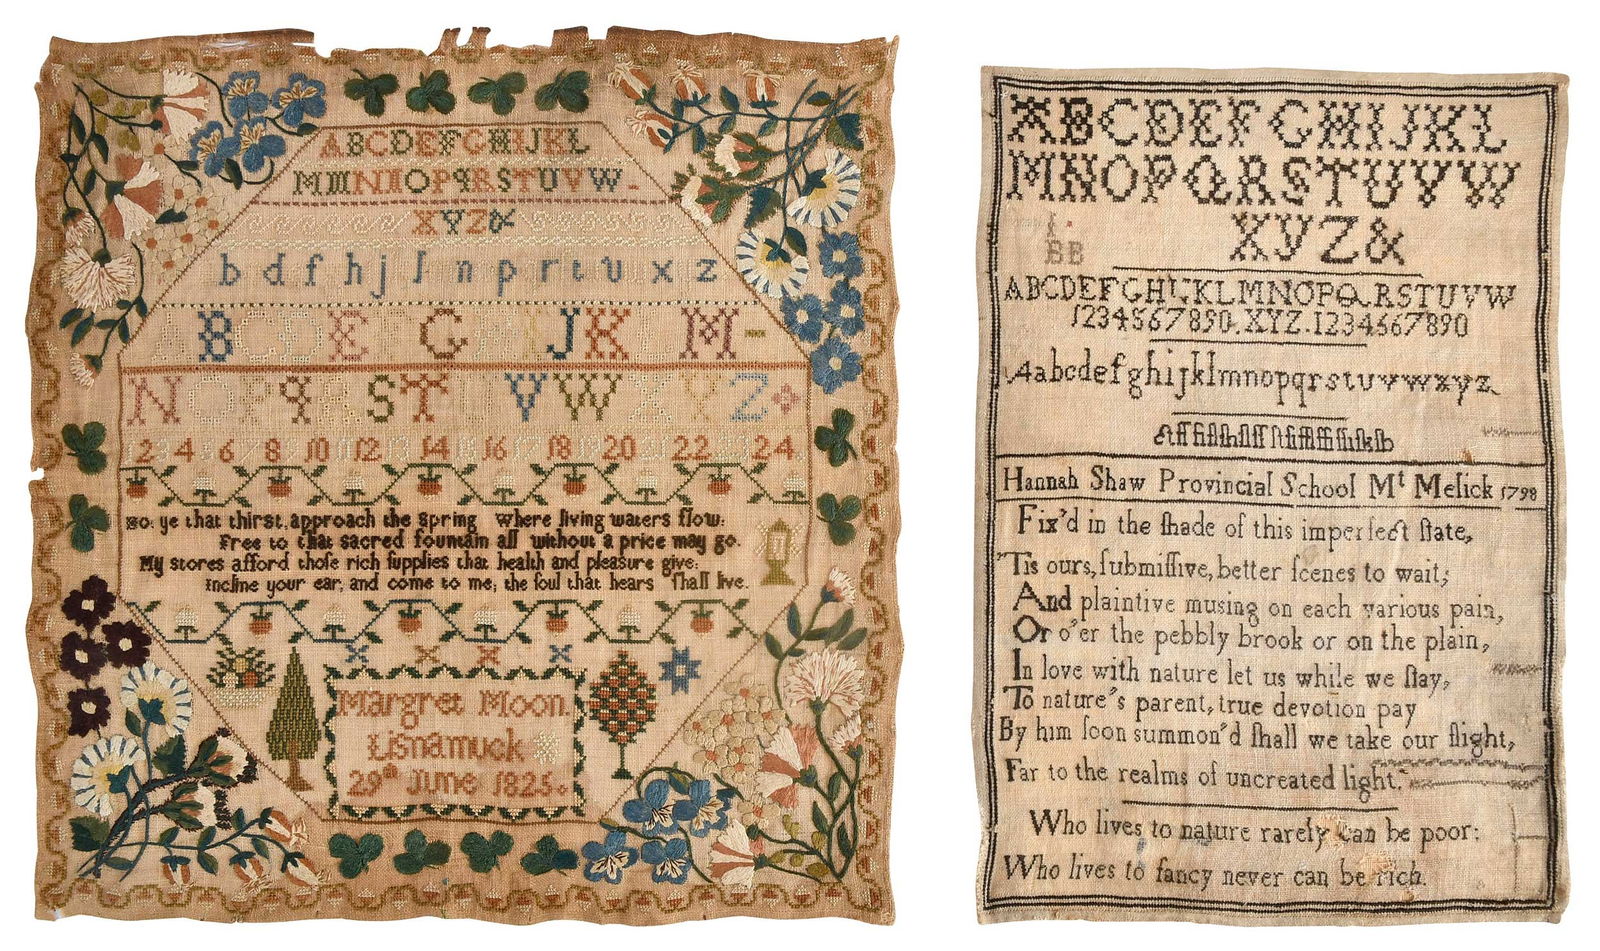 ABCDEFGHIJKL
MNOPQRSTUVW
XYZ&
b d f h j l n p r t v x z
A B C D E G I J K L M
N O P Q R S T U V W X Y Z
1 2 3 4 5 6 7 8 9 10 11 12 13 14 15 16 17 18 19 20 21 22 23 24
Ho: ye that thirst, approach the spring where living waters flow:
Free to that sacred fountain all without a price may go.
My stores afford thoſe rich ſupplies that health and pleaſure give:
Incline your ear; and come to me; the ſoul that hears ſhall live.
Margret Moon
Lisnamuck
29th June 1825
ABCDEFGHIJKL
MNOPQRSTUVW
I
BB
XYZ&
ABCDEFGHIJKLMNOPQRSTUVW
1234567890. XYZ. 1234567890
Aabcdefghijklmnopqrstuvwxyz
Hannah Shaw Provincial School Mt Melick 1798
Fix'd in the ſhade of this imperfect ſtate,
'Tis ours, ſubmiſſive, better ſcenes to wait;
And plaintive musing on each various pain,
Or o'er the pebbly brook or on the plain,
In love with nature let us while we ſtay,
To nature's parent, true devotion pay
By him ſoon summon'd ſhall we take our flight,
Far to the realms of uncreated light.
Who lives to nature rarely can be poor:
Who lives to fancy never can be rich.